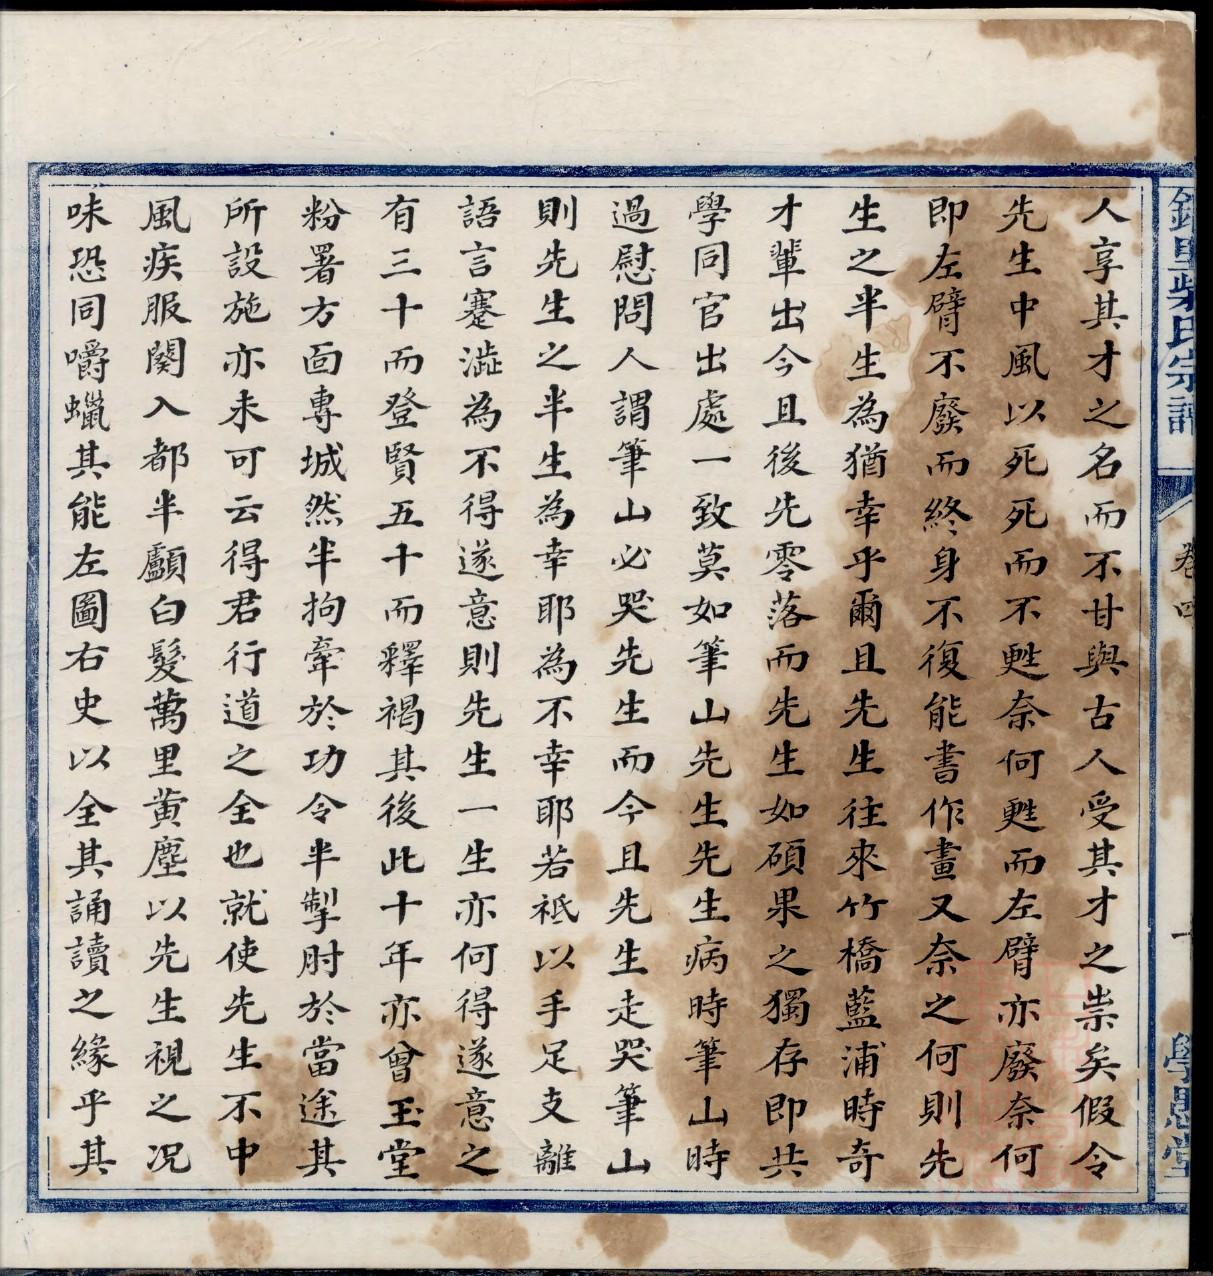 人享其才之名而不甘與古人受其才之祟矣假令
先生中風以死死而不甦奈何甦而左臂亦廢奈何
即左臂不廢而終身不復能書作畫又奈之何則先
生之半生為猶幸乎爾且先生往來竹橋藍浦時奇
才輩出今且後先零落而先生如碩果之獨存即共
學同官出處一致莫如筆山先生先生病時筆山時
過慰問人謂筆山必哭先生而今且先生走哭筆山
則先生之半生為幸耶為不幸耶若祗以手足支離
語言蹇澁為不得遂意則先生一生亦何得遂意之
有三十而登賢五十而釋褐其後此十年亦曾玉堂
粉署方面專城然半拘牽於功令半掣肘於當途其
所設施亦未可云得君行道之全也就使先生不中
風疾服闋入都半顱白髮萬里黃塵以先生視之况
味恐同嚼蠟其能左圖右史以全其誦讀之緣乎其
里柴氏宗譜
卷四
學愚堂